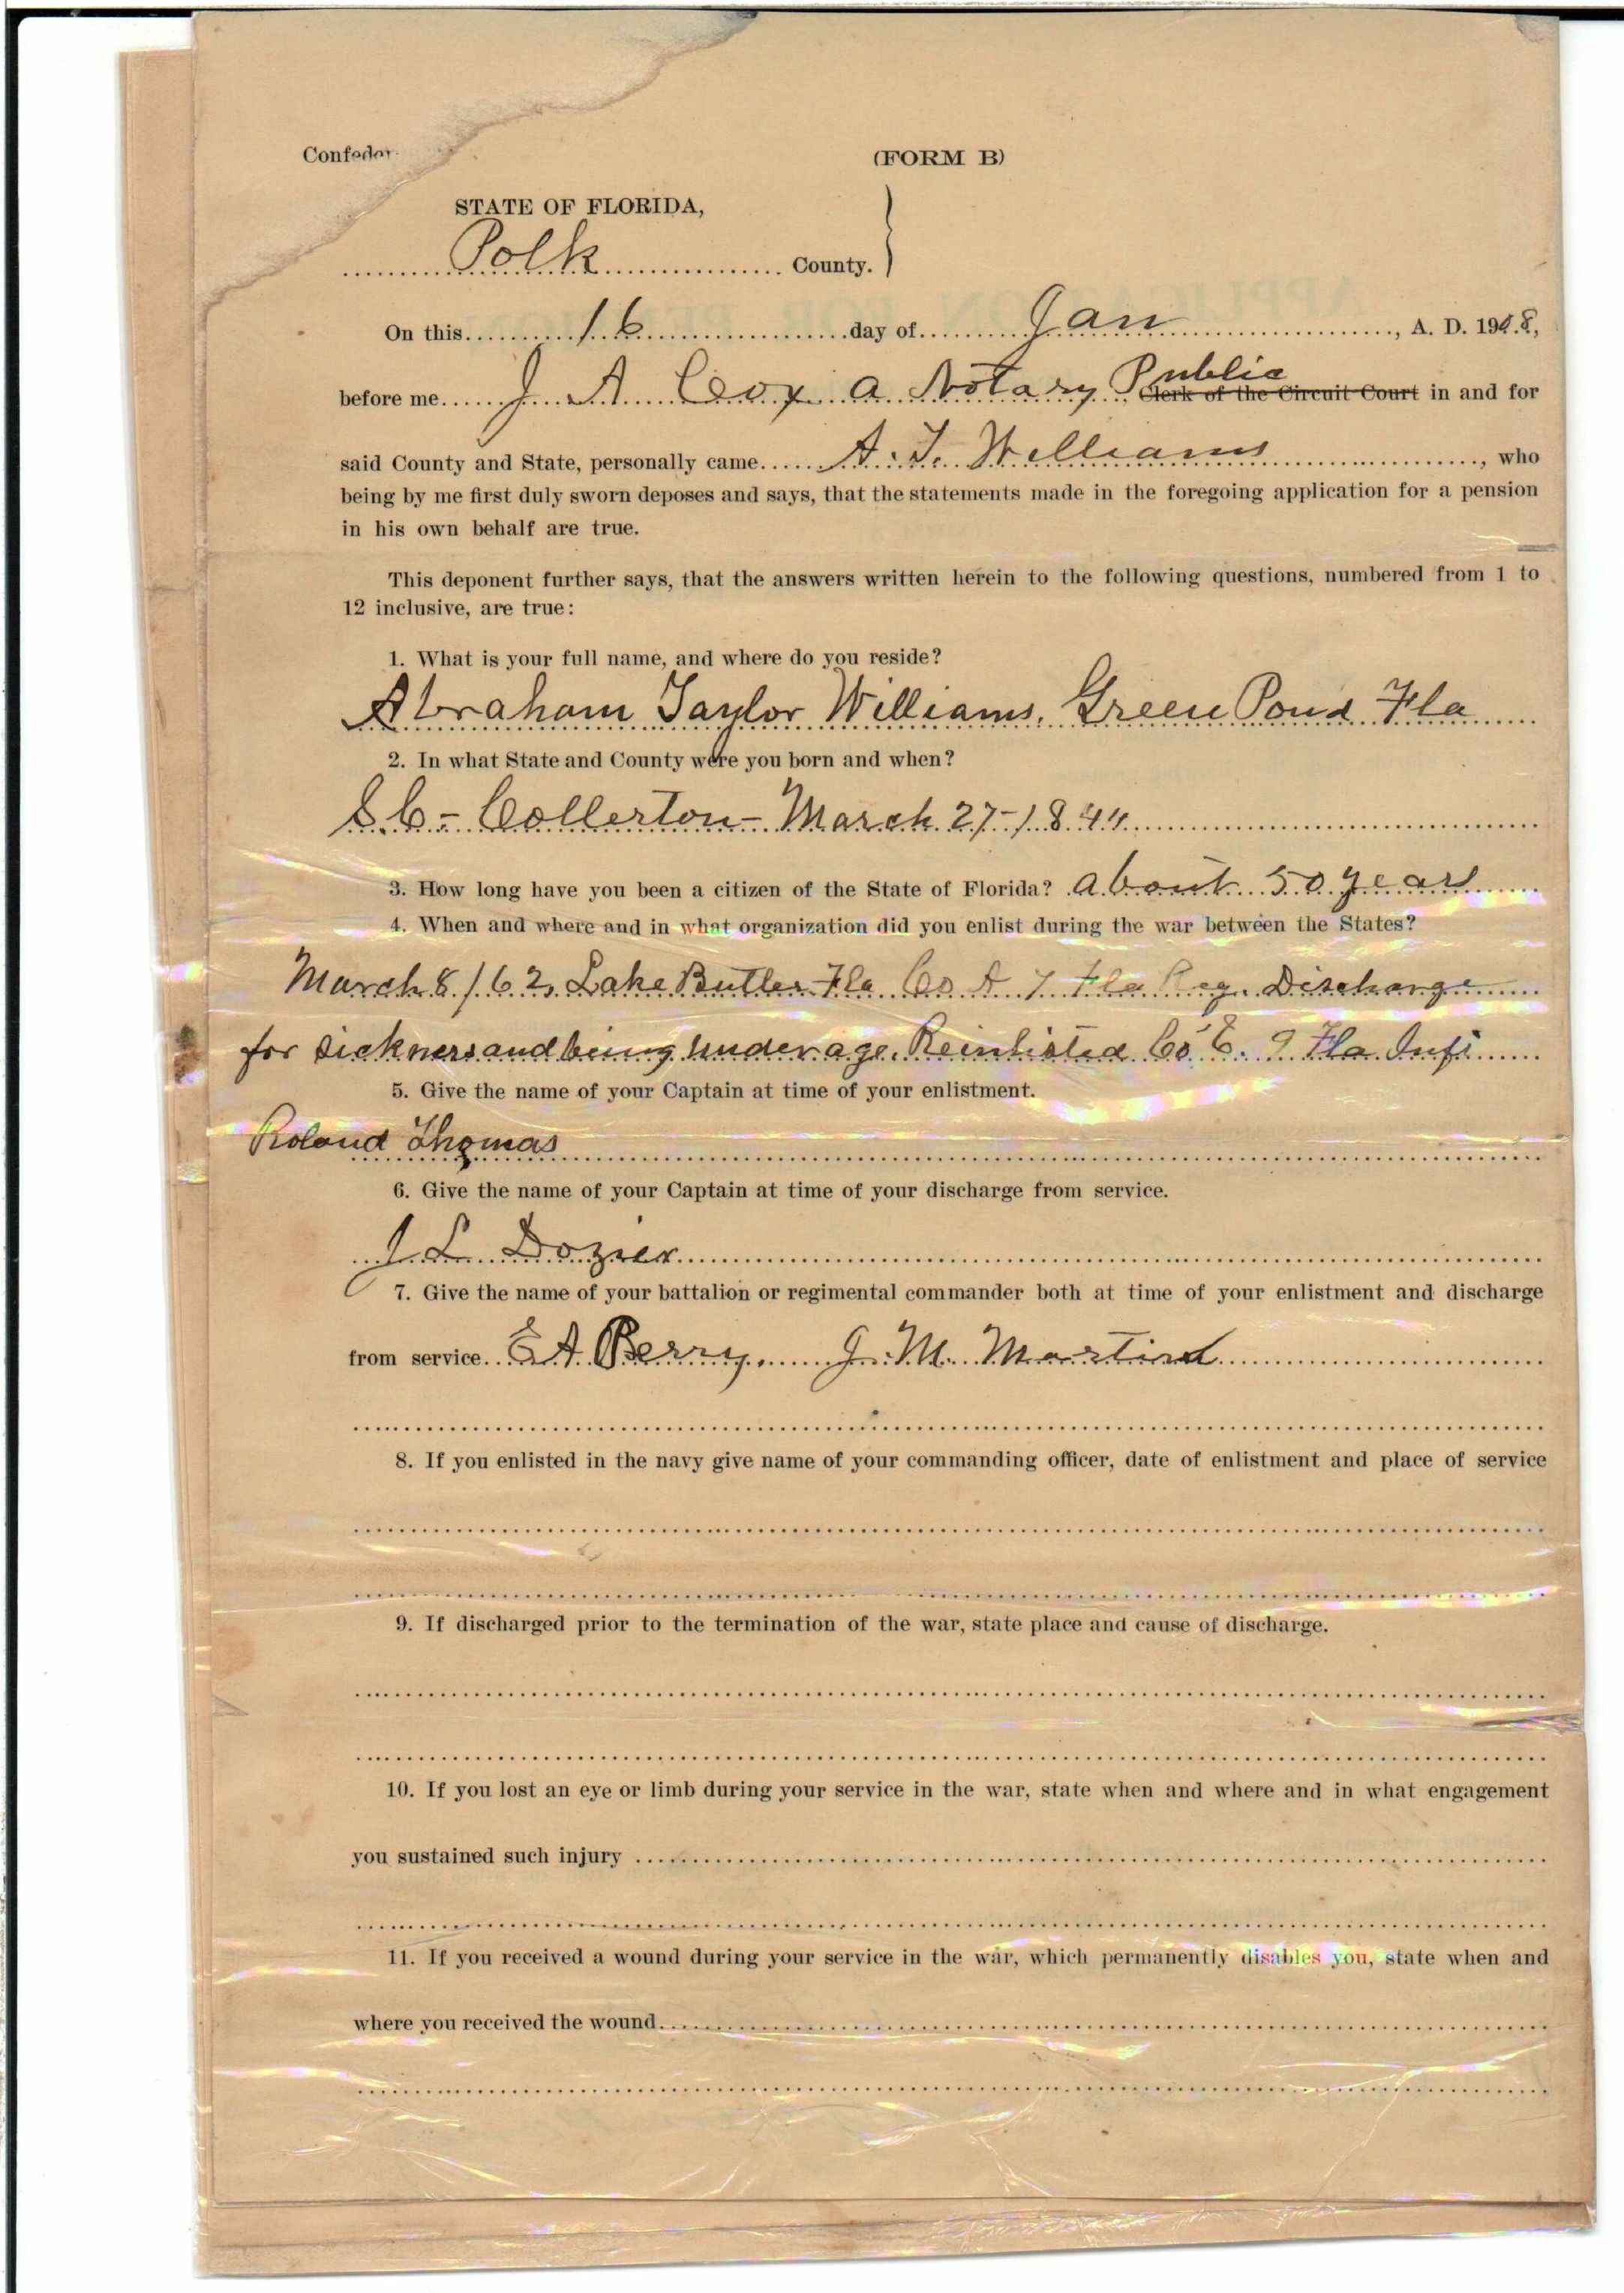 (FORM B)
STATE OF FLORIDA,
Polk County.
On this 16 day of Jan, A. D. 1908,
before me J. A. Cox a Notary Public Clerk of the Circuit Court in and for
said County and State, personally came A. T. Williams, who
being by me first duly sworn deposes and says, that the statements made in the foregoing application for a pension
in his own behalf are true.
This deponent further says, that the answers written herein to the following questions, numbered from 1 to
12 inclusive, are true:
1. What is your full name, and where do you reside?
Abraham Taylor Williams, Green Pond Fla
2. In what State and County were you born and when?
S.C - Collerton - March 27 - 1844
3. How long have you been a citizen of the State of Florida? about 50 years
4. When and where and in what organization did you enlist during the war between the States?
March 8/62, Lake Butler Fla Co A 7 Fla Reg. Discharge
for sickness and being under age. Reinlisted Co E. 9 Fla. Infi
5. Give the name of your Captain at time of your enlistment.
Roland Thomas
6. Give the name of your Captain at time of your discharge from service.
J L Dozier
7. Give the name of your battalion or regimental commander both at time of your enlistment and discharge
from service E A Berry, J. M. Martin
8. If you enlisted in the navy give name of your commanding officer, date of enlistment and place of service
9. If discharged prior to the termination of the war, state place and cause of discharge.
10. If you lost an eye or limb during your service in the war, state when and where and in what engagement
you sustained such injury
11. If you received a wound during your service in the war, which permanently disables you, state when and
where you received the wound